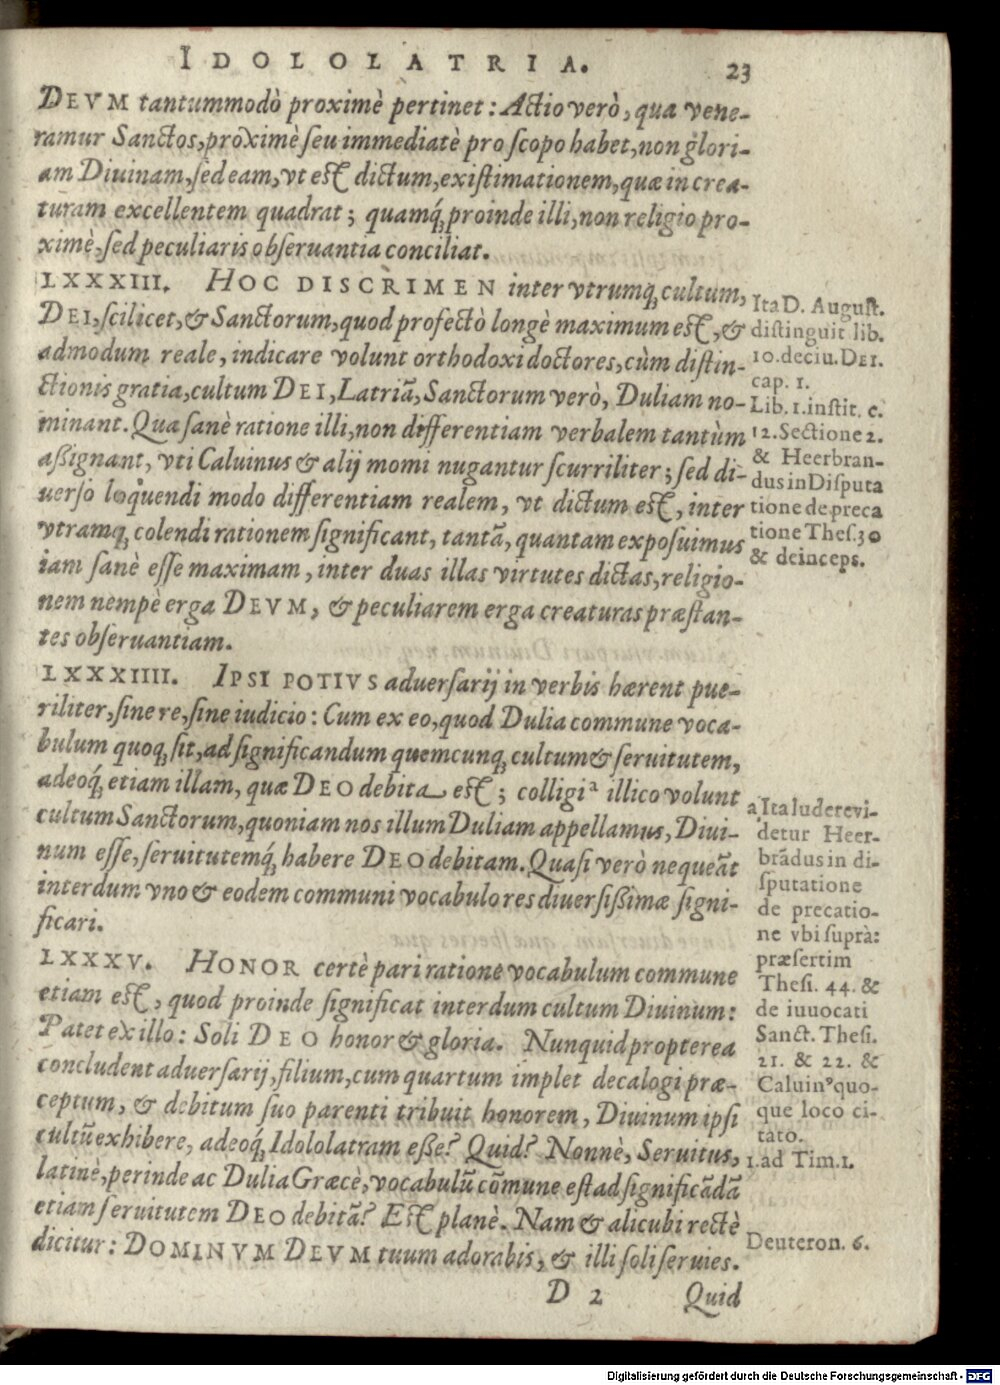 IDOLOLATRIA. 23
DEVM tantummodò proximè pertinet: Actio verò, qua vene-
ramur Sanctos, proximè seu immediatè pro scopo habet, non glori-
am Diuinam, sed eam, vt est dictum, existimationem, quæ in crea-
turam excellentem quadrat; quamq́; proinde illi, non religio pro-
ximè, sed peculiaris obseruantia conciliat.
LXXXIII. HOC DISCRIMEN inter vtrumq; cultum,
DEI, scilicet, & Sanctorum, quod profectò longè maximum est, &
admodum reale, indicare volunt orthodoxi doctores, cùm distin-
ctionis gratia, cultum DEI, Latriã, Sanctorum verò, Duliam no-
minant. Qua sanè ratione illi, non differentiam verbalem tantùm
aßignant, vti Caluinus & alij momi nugantur scurriliter; sed di-
uerso loquendi modo differentiam realem, vt dictum est, inter
vtramq; colendi rationem significant, tantã, quantam exposuimus
iam sanè esse maximam, inter duas illas virtutes dictas, religio-
nem nempè erga DEVM, & peculiarem erga creaturas præstan-
tes obseruantiam.
Ita D. August.
distinguit lib.
10. deciu. DEI.
cap. 1.
Lib. 1. instit. c.
12. Sectione 2.
& Heerbran-
dus in Disputa
tione de preca
tione Thes. 30
& deinceps.
LXXXIIII. IPSI POTIVS aduersarij in verbis hærent pue-
riliter, sine re, sine iudicio: Cum ex eo, quod Dulia commune voca-
bulum quoq; sit, ad significandum quemcunq; cultum & seruitutem,
adeoq́; etiam illam, quæ DEO debita est; colligi ᵃ illico volunt
cultum Sanctorum, quoniam nos illum Duliam appellamus, Diui-
num esse, seruitutemq́; habere DEO debitam. Quasi verò nequeãt
interdum vno & eodem communi vocabulo res diuersißimæ signi-
ficari.
a Ita ludere vi-
detur Heer-
brãdus in di-
sputatione
de precatio-
ne vbi suprà:
præsertim
Thesi. 44. &
de iuuocati
Sanct. Thesi.
21. & 22. &
Caluinꝰ quo-
que loco ci-
tato.
LXXXV. HONOR certè pari ratione vocabulum commune
etiam est, quod proinde significat interdum cultum Diuinum:
Patet ex illo: Soli DEO honor & gloria. Nunquid propterea
concludent aduersarij, filium, cum quartum implet decalogi præ-
ceptum, & debitum suo parenti tribuit honorem, Diuinum ipsi
cultũ exhibere, adeoq́; Idololatram eße? Quid? Nonnè, Seruitus,
latinè, perinde ac Dulia Græcè, vocabulũ cõmune est ad significãdã
etiam seruitutem DEO debitã? Est planè. Nam & alicubi rectè
dicitur: DOMINVM DEVM tuum adorabis, & illi soli seruies.
1. ad Tim. 1.
Deuteron. 6.
D 2 Quid
Digitalisierung gefördert durch die Deutsche Forschungsgemeinschaft - DFG